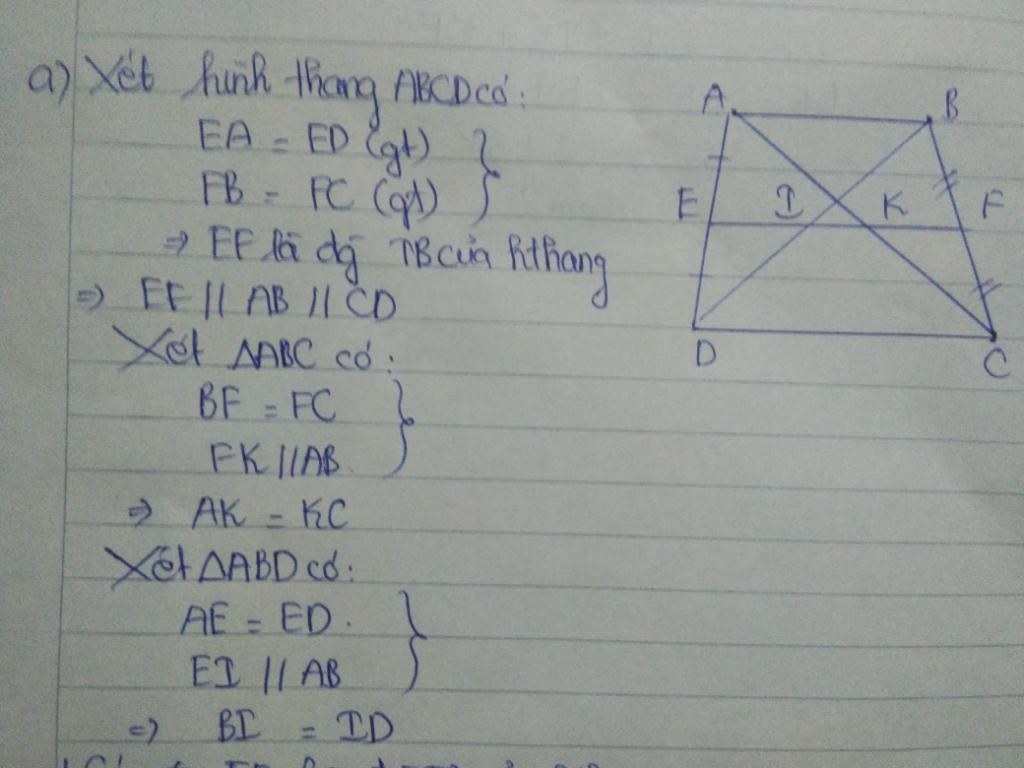 a) Xét hình thang ABCD có:
EA = ED (gt)
FB = FC (gt)
⇒ EF là đg TB của hthang
⇒ EF // AB // CD
Xét ΔABC có:
BF = FC
FK // AB
⇒ AK = KC
Xét ΔABD có:
AE = ED.
EI // AB
⇒ BI = ID
A B
E I K F
D C